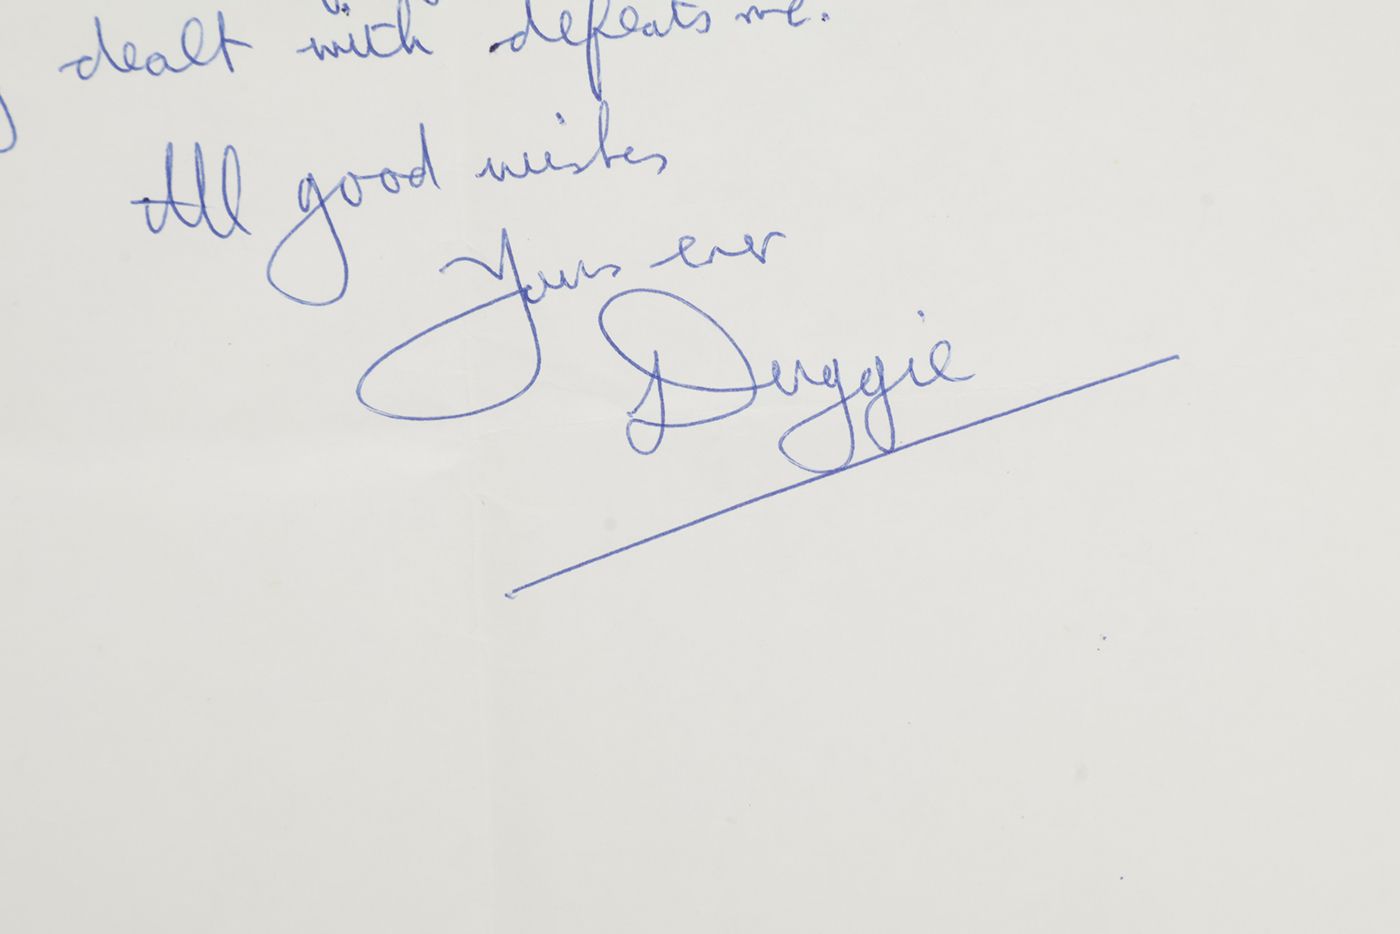 dealt with defeats me.
All good wishes
Yours ever
Duggie